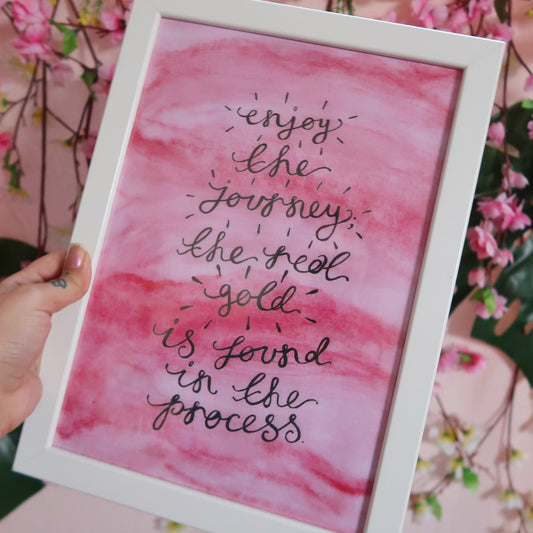 enjoy
the
journey;
the real
gold
is found
in the
process.